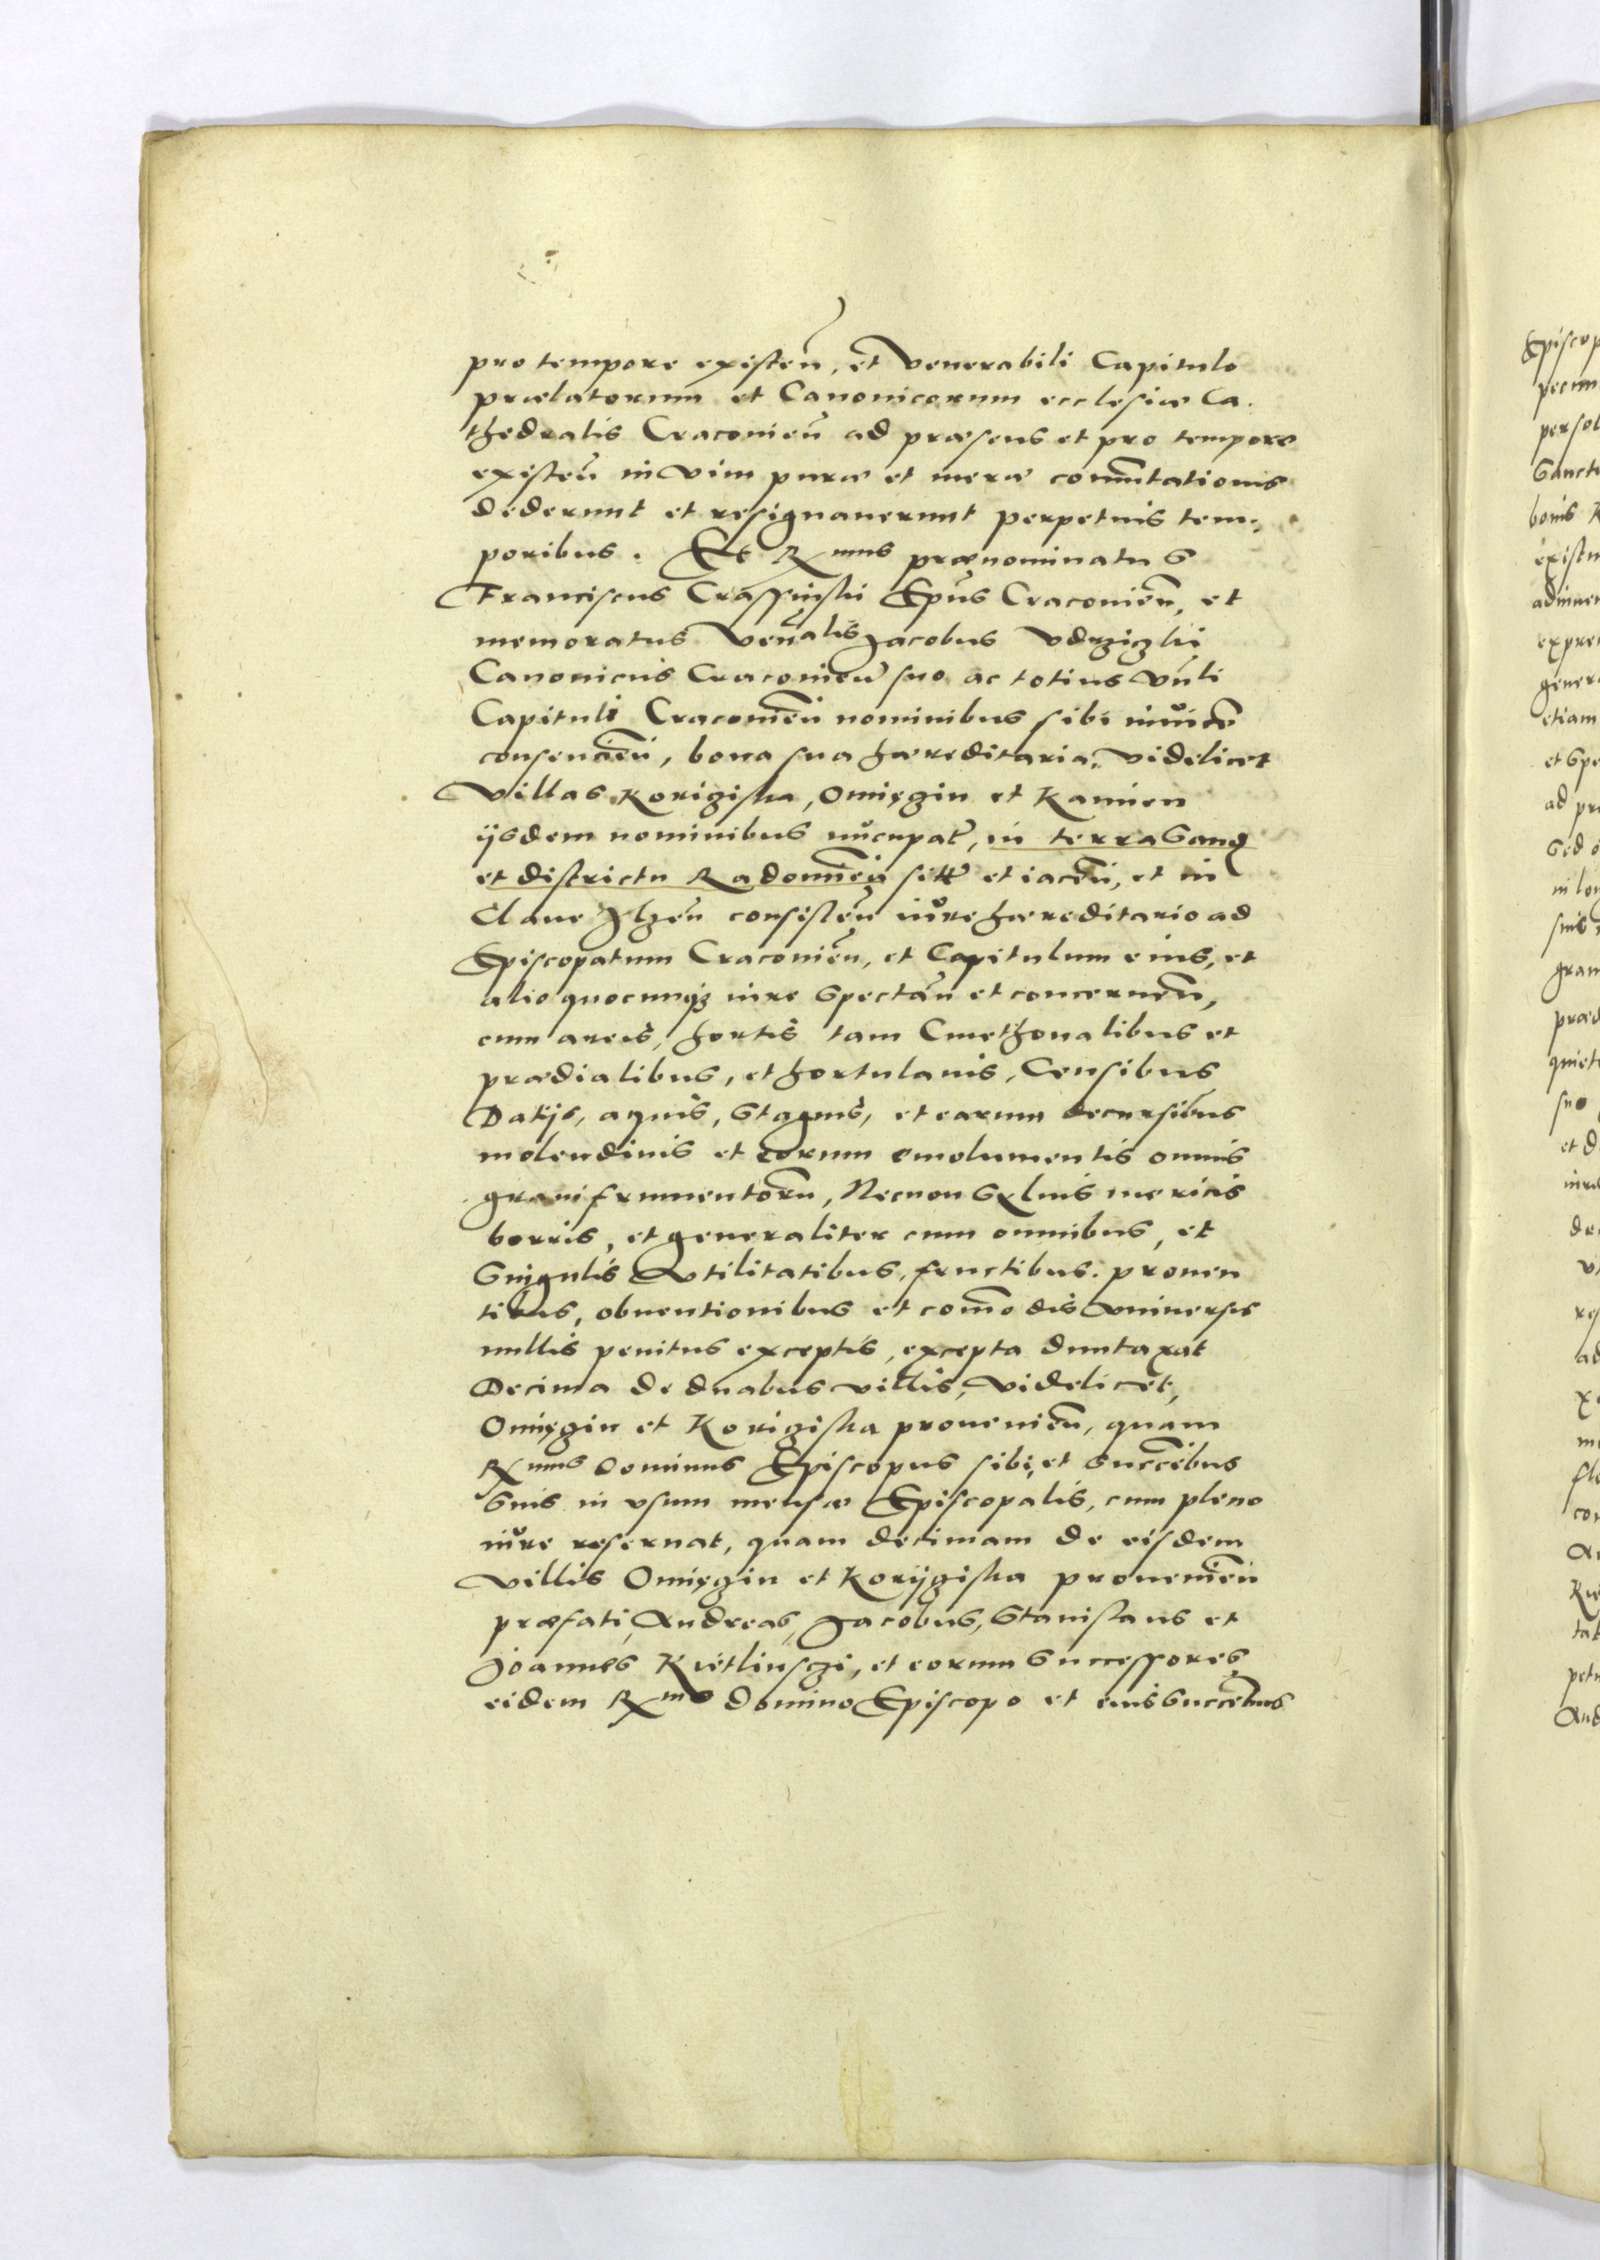 pro tempore existeñ, et Venerabili Capitulo
prælatorum et Canonicorum ecclesiæ Ca.
thedralis Cracovieñ ad præsens et pro tempore
existeñ in vim puræ et meræ commutationis
dederunt et resignauerunt perpetuis tem.
poribus. Et Rmus prænominatus
Franciscus Crassinski Epūs Cracovieñ, et
memoratus Venalis Jacobus
Canonicus Cracovieñ suo ac totius Vnli
Capituli Cracovieñ nominibus sibi inuicē
consencieñ, bona sua hæreditaria, videlicet
Villas Korigiska, Omięgin et Kamien
ijsdem nominibus nūcupat, in terra Sand
et districtu Radomieñ sitt et iaceñ, et in
Claue Ilzeñ consisteñ iure hæreditario ad
Episcopatum Cracovieñ, et Capitulum eius, et
alio quocunqz iure spectañ et concerneñ,
cum areis, hortis tam Cmethonalibus et
prædialibus, et hortulanis, Censibus
Datijs, aquis, Stagnis, et earum decursibus
molendinis et eorum emolumentis omnis
grani frumentorū, Necnon Syluis mericis
borris, et generaliter cum omnibus, et
Singulis Vtilitatibus, fructibus. prouen
tibus, obuentionibus et comodis vniuersis
nullis penitus exceptis, excepta duntaxat
Decima de duabus villis, videlicet,
Omięgin et Korigiska prouenieñ, quam
Rmus Dominus Episcopus sibi, et Succēbus
Suis in vsum mensæ Episcopalis, cum pleno
iure reseruat, quam decimam de eisdem
Villis Omięgin et Korijgiska prouenieñ
præfati, Andreas, Jacobus, Stanislaus et
Joannes Kietlinsczi, et eorum Successores
eidem Rmo Domino Episcopo et eius Succēbus